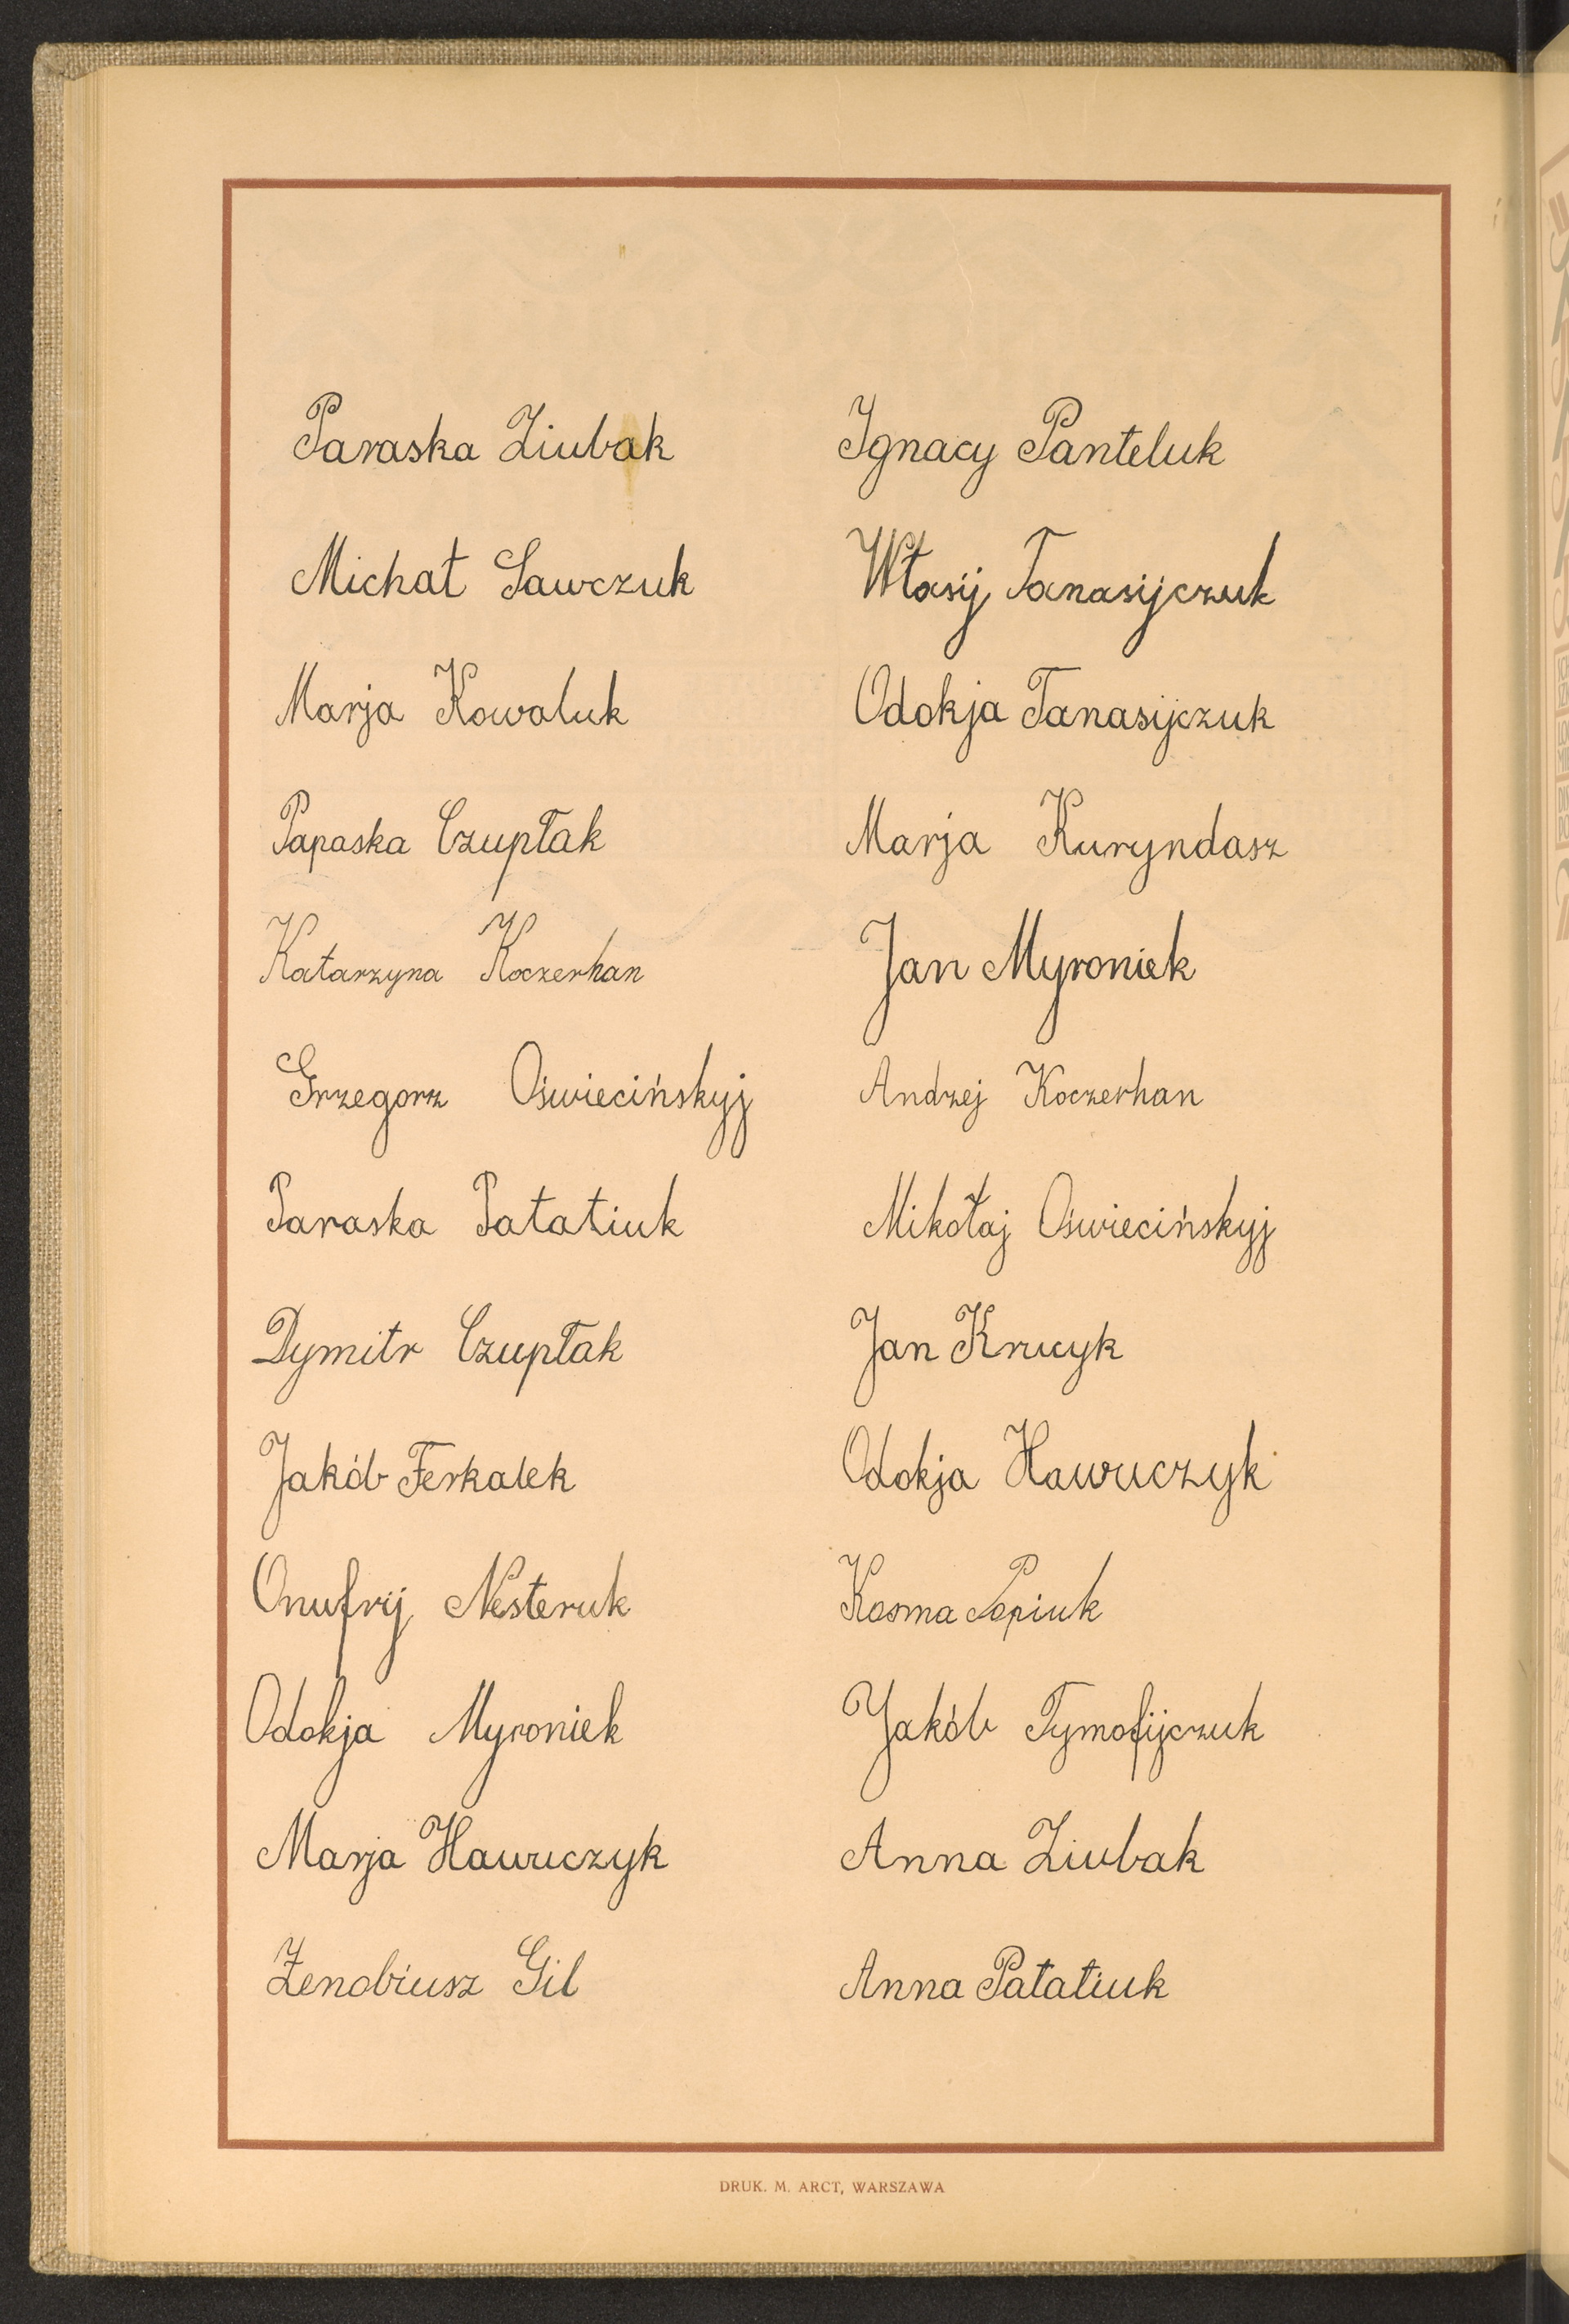 Paraska Ziubak
Michał Sawczuk
Marja Kowaluk
Papaska Czupłak
Katarzyna Koczerhan
Grzegorz Oświecińskyj
Paraska Patatiuk
Dymitr Czupłak
Jakób Ferkalek
Onufrij Nesteruk
Odokja Myroniek
Marja Hawuczyk
Zenobiusz Gil
Ignacy Panteluk
Własij Tanasijczuk
Odokja Tanasijczuk
Marja Kuryndasz
Jan Myroniek
Andrzej Koczerhan
Mikołaj Oświecińskyj
Jan Krucyk
Odokja Hawuczyk
Kosma Popiuk
Jakób Tymofijczuk
Anna Ziubak
Anna Patatiuk
DRUK. M. ARCT, WARSZAWA